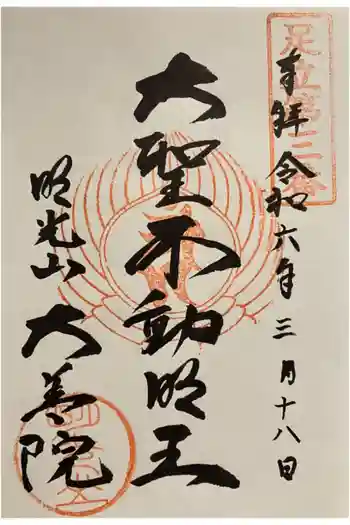 足立第三番
奉拝 令和六年三月十八日
大聖不動明王
明光山
大善院